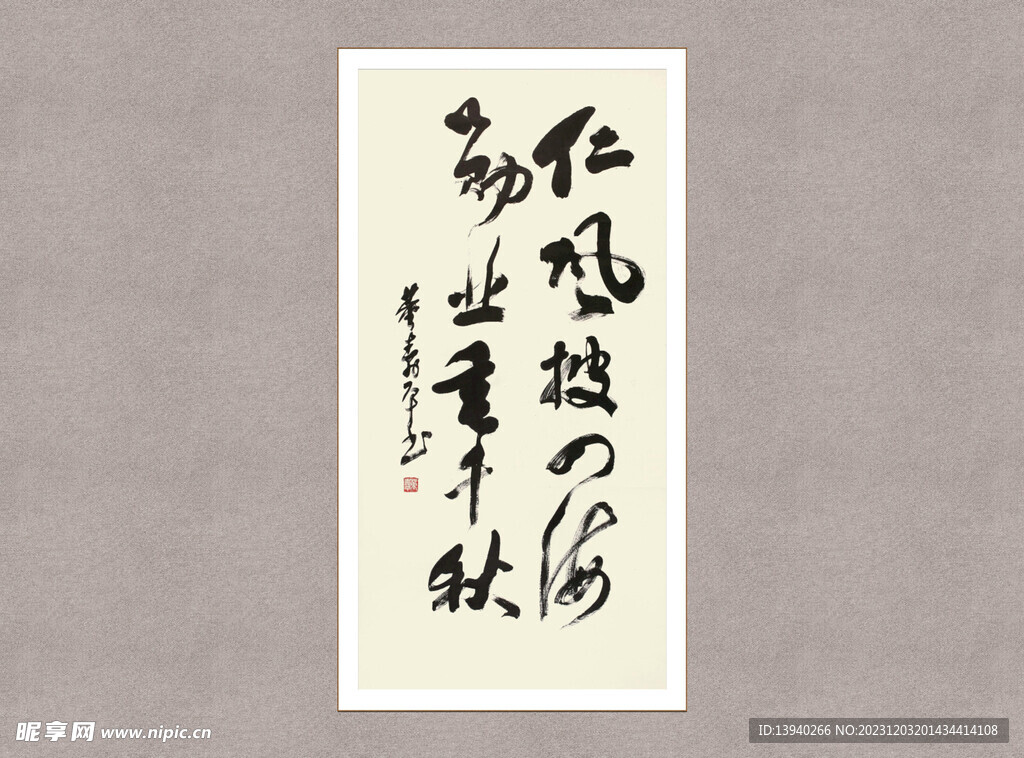 仁风披四海
勋业垂千秋
董寿平书
昵享网 www.nipic.cn
ID:13940266 NO:20231203201434414108